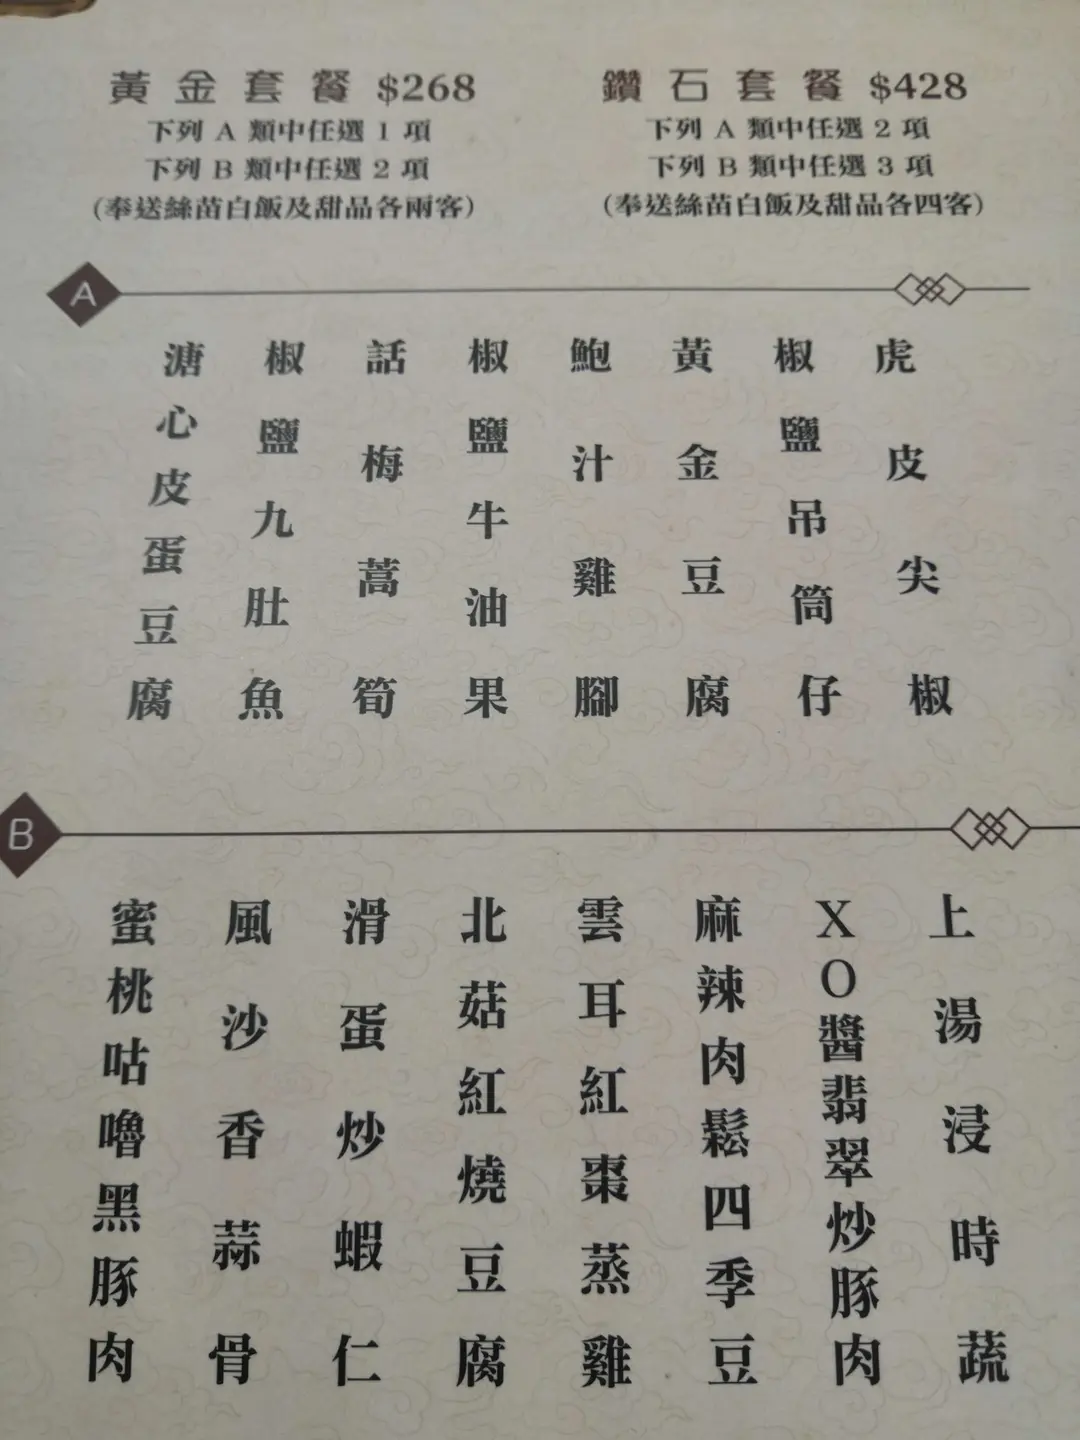 黃金套餐 $268
下列 A 類中任選 1 項
下列 B 類中任選 2 項
(奉送絲苗白飯及甜品各兩客)
鑽石套餐 $428
下列 A 類中任選 2 項
下列 B 類中任選 3 項
(奉送絲苗白飯及甜品各四客)
A
虎皮尖椒
椒鹽吊筒仔
黃金豆腐
鮑汁雞腳
椒鹽牛油果
話梅蒿筍
椒鹽九肚魚
溏心皮蛋豆腐
B
上湯浸時蔬
XO醬翡翠炒豚肉
麻辣肉鬆四季豆
雲耳紅棗蒸雞
北菇紅燒豆腐
滑蛋炒蝦仁
風沙香蒜骨
蜜桃咕嚕黑豚肉